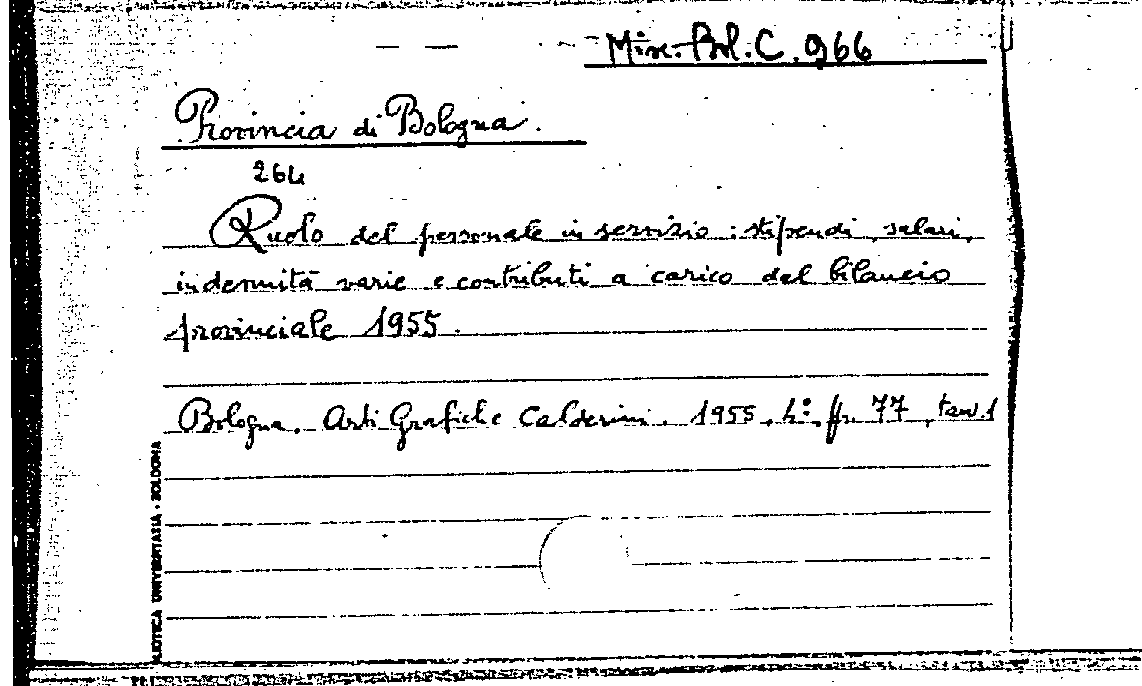 Misc. Bol. C. 966
Provincia di Bologna.
264
Ruolo del personale in servizio: stipendi, salari,
indennità varie e contributi a carico del bilancio
provinciale 1955.
Bologna. Arti Grafiche Calderini. 1955. 4°. pp. 77, tav. 1
BIBLIOTECA UNIVERSITARIA - BOLOGNA